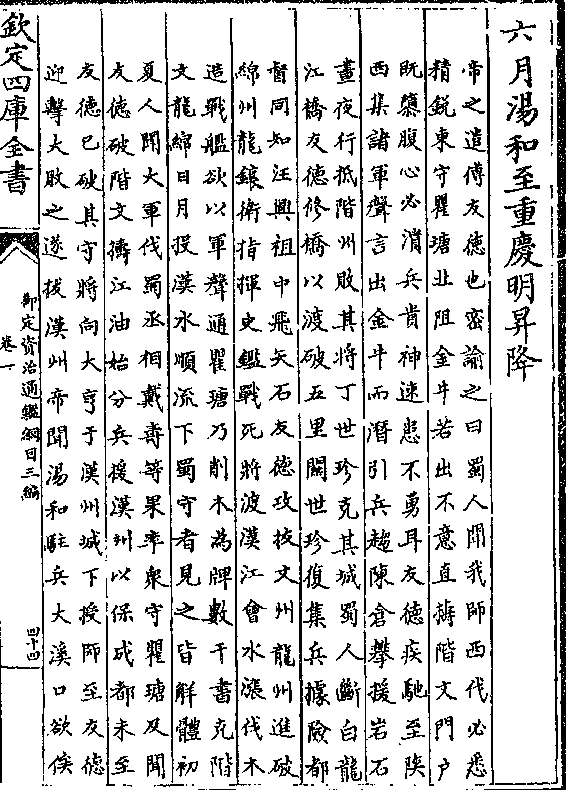 六月湯和至重慶明昇降
帝之遣傅友德也密諭之曰蜀人聞我師西伐必悉
精鋭東守瞿塘北阻金牛若出不意直擣階文門户
既隳腹心必潰兵貴神速患不勇耳友德疾馳至陜
西集諸軍聲言出金牛而潛引兵趨陳倉攀援岩石
晝夜行抵階州敗其將丁世珍克其城蜀人斷白龍
江橋友德修橋以渡破五里關世珍復集兵據險都
督同知汪興祖中飛矢石友德攻拔文州龍州進破
綿州龍鑲衛指揮史鑑戰死將渡漢江會水漲伐木
造戰艦欲以軍聲通瞿塘乃削木為牌數千書克階
文龍綿日月投漢水順流下蜀守者見之皆解體初
夏人聞大軍伐蜀丞相戴壽等果率衆守瞿塘及聞
友德破階文擣江油始分兵援漢州以保成都未至
友德已破其守將向大亨于漢州城下援師至友德
迎擊大敗之遂拔漢州帝聞湯和駐兵大溪口欲俟
欽定四庫全書
御定資治通鑑綱目三編
卷一
四十四